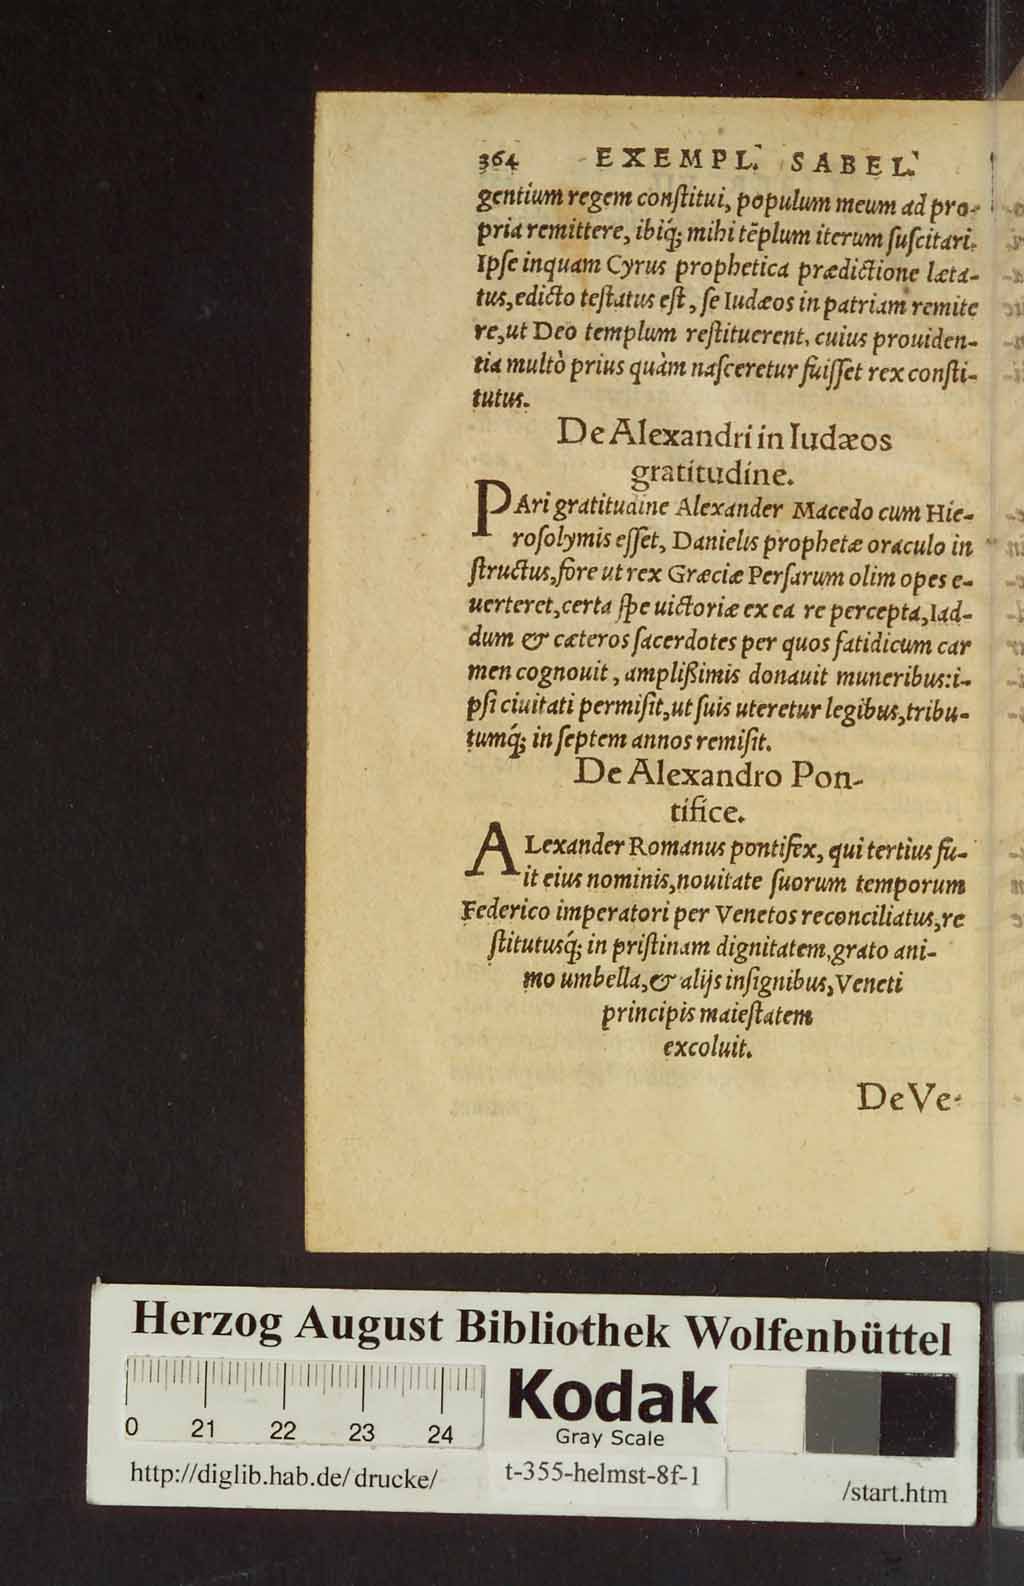 364 EXEMPL. SABEL.
gentium regem conſtitui, populum meum ad pro-
pria remittere, ibiq́; mihi tẽplum iterum ſuſcitari.
Ipſe inquam Cyrus prophetica prædictione læta-
tus, edicto teſtatus eſt, ſe Iudæos in patriam remite
re, ut Deo templum reſtituerent, cuius prouiden-
tia multò prius quàm naſceretur fuiſſet rex conſti-
tutus.
De Alexandri in Iudæos
gratitudine.
PAri gratitudine Alexander Macedo cum Hie-
roſolymis eſſet, Danielis prophetæ oraculo in
ſtructus, fore ut rex Græciæ Perſarum olim opes e-
uerteret, certa ſpe uictoriæ ex ea re percepta, Iad-
dum & cæteros ſacerdotes per quos fatidicum car
men cognouit, amplißimis donauit muneribus: i-
pſi ciuitati permiſit, ut ſuis uteretur legibus, tribu-
tumq́; in ſeptem annos remiſit.
De Alexandro Pon-
tifice.
ALexander Romanus pontifex, qui tertius fu-
it eius nominis, nouitate ſuorum temporum
Federico imperatori per Venetos reconciliatus, re
ſtitutusq́; in priſtinam dignitatem, grato ani-
mo umbella, & alijs inſignibus, Veneti
principis maieſtatem
excoluit.
De Ve-
Herzog August Bibliothek Wolfenbüttel
0 21 22 23 24
Kodak
Gray Scale
http://diglib.hab.de/drucke/
t-355-helmst-8f-1
/start.htm